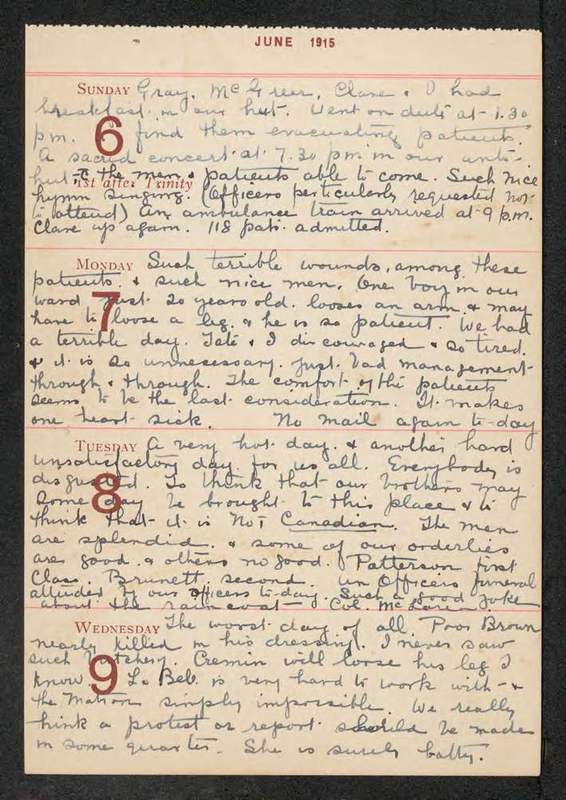 JUNE 1915
SUNDAY Gray, McGreer, Clare & I had
breakfast in our hut. Went on duty at 1.30
pm. 6 find them evacuating patients.
A sacred concert at 7.30 pm in our ante-
hut to the men & patients able to come. Such nice
1st after Trinity
hymn singing. (Officers particularly requested not
to attend) An ambulance train arrived at 9 p.m.
Clare up again. 118 pats. admitted.
MONDAY Such terrible wounds, among these
patients. & such nice men. One boy in our
ward 7 just 20 years old. looses an arm & may
have to loose a leg. & he is so patient. We had
a terrible day. Tate & I discouraged & so tired.
& it is so unnecessary. Just bad management
through & through. The comfort of the patients
seems to be the last consideration. It makes
one heart sick. No mail again to-day
TUESDAY A very hot day. & another hard
unsatisfactory day for us all. Everybody is
disgusted. 8 To think that our brothers may
some day be brought to this place & to
think that it is NOT Canadian. The men
are splendid. & some of our orderlies
are good. & others no good. Patterson first
Class. Brunett second. An Officers funeral
attended by our officers to-day. Such a good joke
about the rain coat - Col. McLaren
WEDNESDAY The worst day of all. Poor Brown
nearly killed in his dressing. I never saw
such butchery. Cremin will loose his leg I
know 9 Le Bel. is very hard to work with - &
the Matron simply impossible. We really
think a protest or report should be made
in some quarter. She is surely batty.